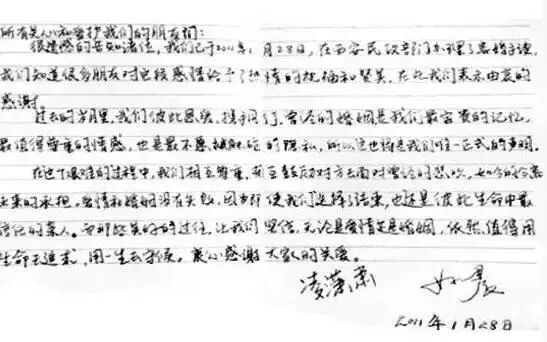 所有关心和爱护我们的朋友们：
很遗憾的告知诸位，我们已于2011年1月28日，在西安民政部门办理了离婚手续，
我们知道很多朋友对这段感情给予了热情的祝福和赞美，在此我们表示由衷的
感谢。
过去的岁月里，我们彼此恩爱，携手同行，曾经的婚姻是我们最宝贵的记忆，
最值得尊重的情感，也是最不愿被触碰的隐私，所以这也将是我们唯一正式的声明。
在这个艰难的过程中，我们相互尊重，相互鼓励对方去面对曾经的悲欢，如今的分离
未来的承担。爱情和婚姻没有失败，因为即使我们选择了结束，也还是彼此生命中最
的亲人。而那些美好的过往，让我们坚信，无论是爱情还是婚姻，依然值得用
生命去追求，用一生去守候。衷心感谢大家的关爱。
凌潇肃 姚晨
2011年1月28日